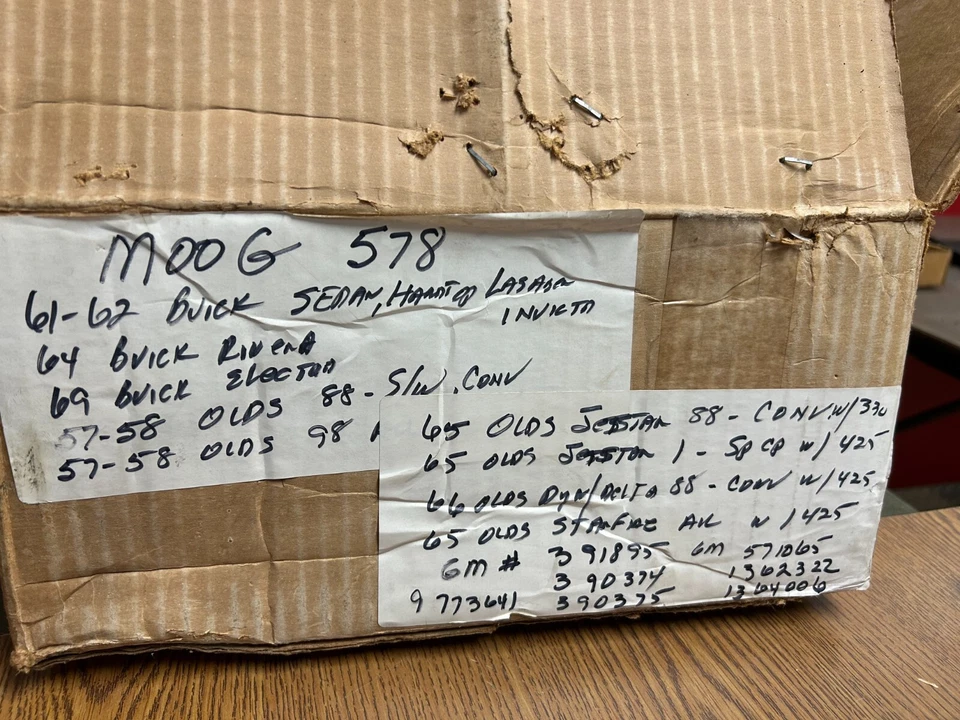 MOOG 578
61-62 BUICK SEDAN, HARDTOP LASABR
INVICTA
64 BUICK RIVERA
69 BUICK ELECTRA
57-58 OLDS 88 - S/W. CONV
57-58 OLDS 98
65 OLDS JETSTAR 88 - CONV. W/330
65 OLDS JETSTAR 1 - SP CP W/425
66 OLDS DYN/DELTA 88 - CONV W/425
65 OLDS STARFIRE AIR W/425
GM # 391895 GM 571065
390374 1362322
9773641 390375 1364006